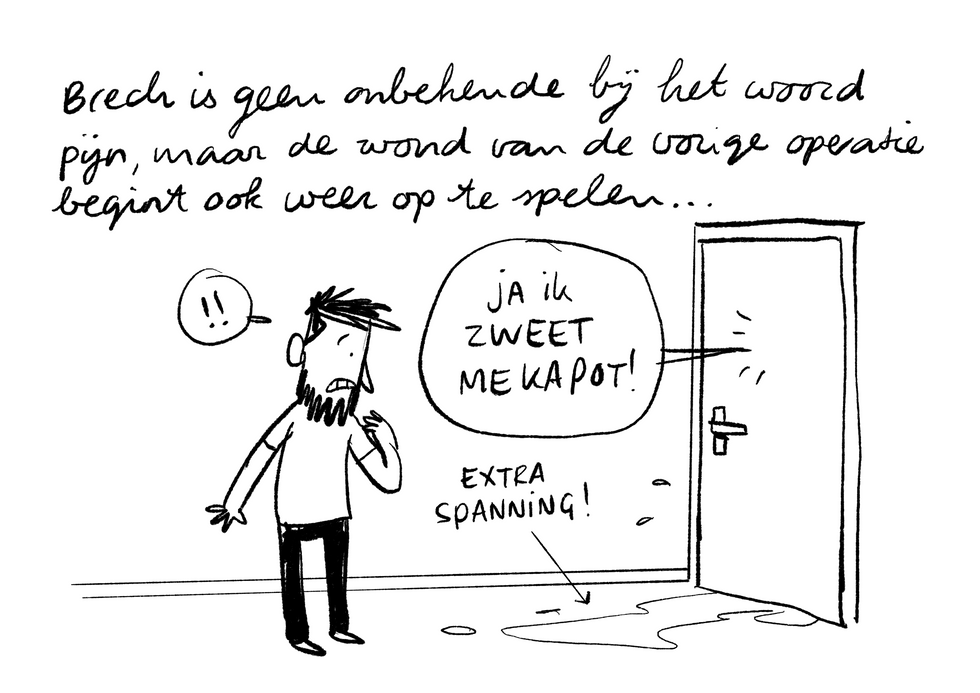 Brech is geen onbekende bij het woord
pijn, maar de wond van de vorige operatie
begint ook weer op te spelen...
!!
JA ik
ZWEET
ME KAPOT!
EXTRA
SPANNING!